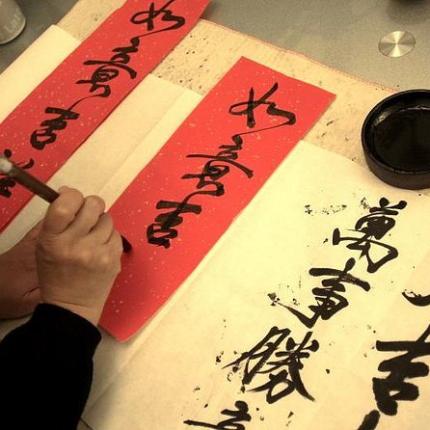 吉
萬事勝
如意吉
如意吉祥